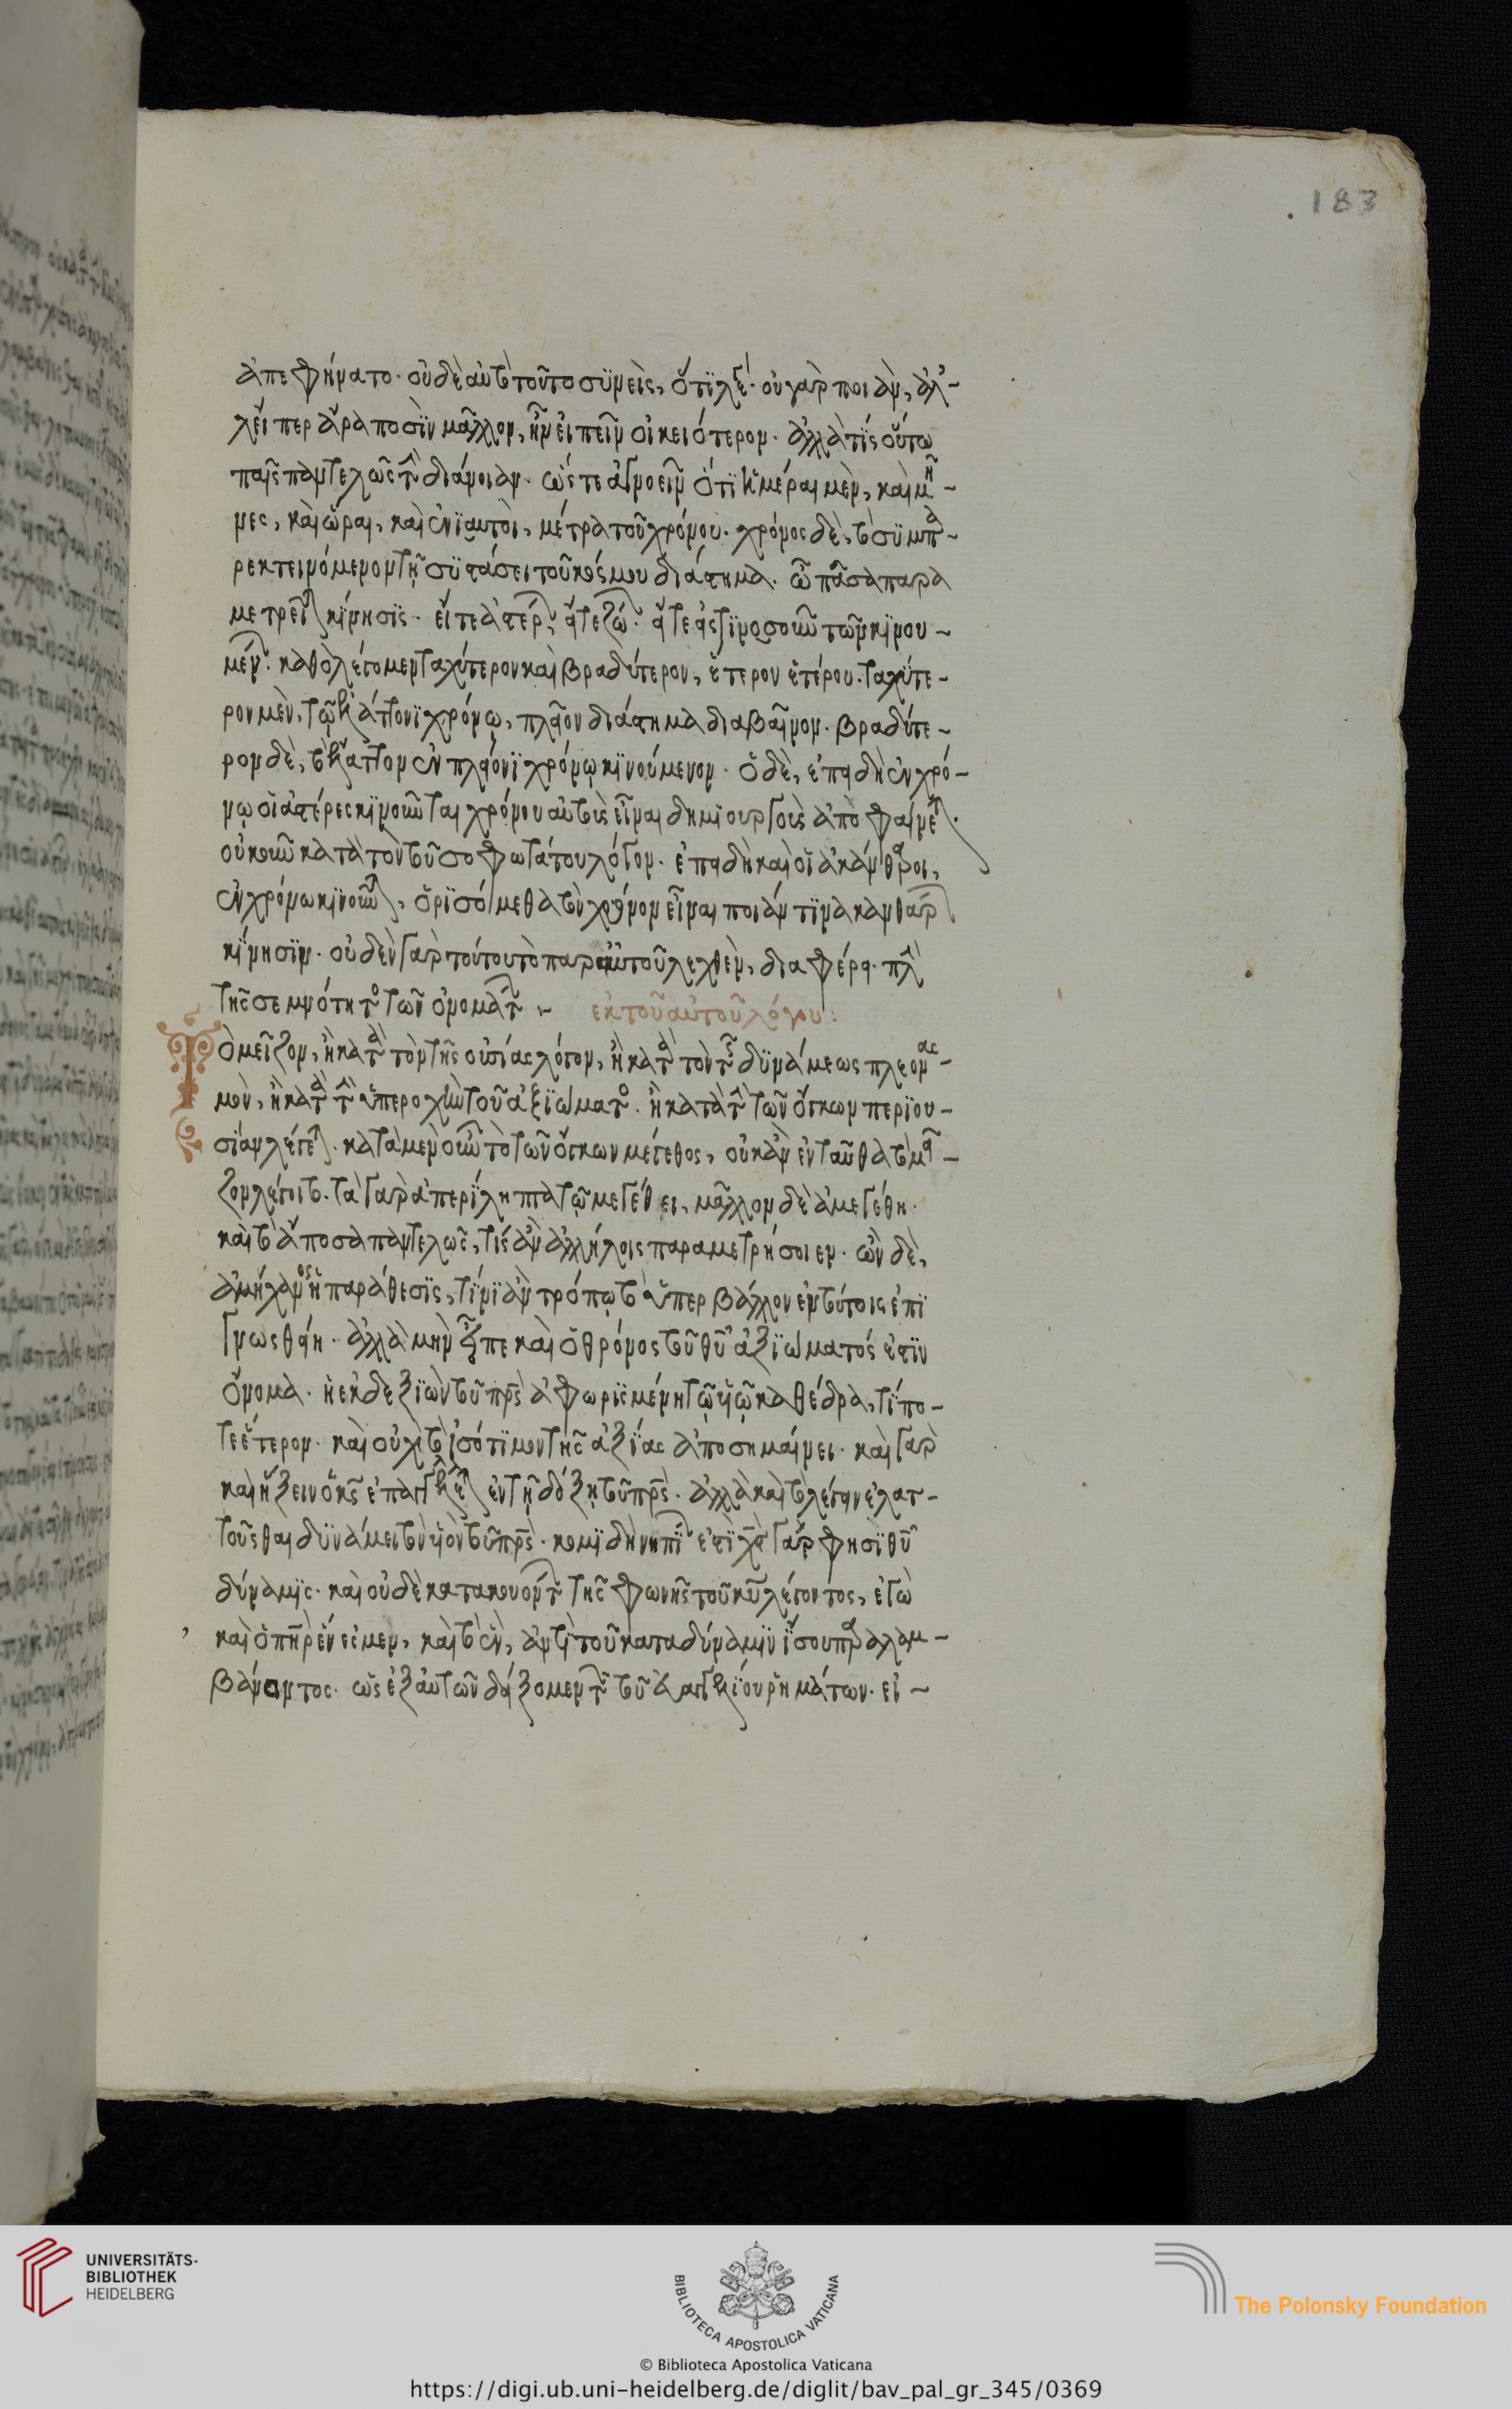 ἀπεφήνατο· οὐδὲ αὐτὸ τοῦτο συνεὶς, ὅτι λέγει· οὐ γὰρ ποιὰν, ἀλ-
λ' εἴπερ ἄρα ποσὴν μᾶλλον, ἦν εἰπεῖν οἰκειότερον. ἀλλὰ τίς οὕτω
παῖς παντελῶς τὴν διάνοιαν· ὥστε ἀγνοεῖν ὅτι ἡμέραι μὲν, καὶ μῆ-
νες, καὶ ὧραι, καὶ ἐνιαυτοὶ, μέτρα τοῦ χρόνου. χρόνος δὲ, τὸ συμπα-
ρεκτεινόμενον τῇ συστάσει τοῦ κόσμου διάστημα. ᾧ πᾶσα παρα
μετρεῖται κίνησις. εἴτε ἀστέρων, εἴτε ζώων· εἴτε οὑτινοσοῦν τῶν κινου-
μένων. καθὸ λέγομεν ταχύτερον καὶ βραδύτερον, ἕτερον ἑτέρου. ταχύτε-
ρον μὲν, τῷ ἐλάττονι χρόνῳ, πλεῖον διάστημα διαβαῖνον. βραδύτε-
ρον δὲ, τὸ ἔλαττον ἐν πλείονι χρόνῳ κινούμενον. ὁ δὲ, ἐπειδὴ ἐν χρό-
νῳ οἱ ἀστέρες κινοῦνται χρόνου αὐτοὺς εἶναι δημιουργοὺς ἀποφαίνεται.
οὐκοῦν κατὰ τὸν τοῦ σοφωτάτου λόγον. ἐπειδὴ καὶ οἱ ἀκάνθαροι,
ἐν χρόνω κινοῦνται, ὁρισόμεθα τὸν χρόνον εἶναι ποιάν τινα κανθάρων
κίνησιν. οὐδὲν γὰρ τούτου τὸ παρ' αὐτοῦ λεχθὲν, διαφέρει. πλὴν
τῆς σεμνότητος τῶν ὀνομάτων ~ ἐκ τοῦ αὐτοῦ λόγου:
Τὸ μεῖζον, ἢ κατὰ τὸν τῆς οὐσίας λόγον, ἢ κατὰ τὸν τῆς δυνάμεως πλεονασ-
μὸν, ἢ κατὰ τὴν ὑπεροχὴν τοῦ ἀξιώματος. ἢ κατὰ τὴν τῶν ὄγκων περιου-
σίαν λέγεται. κατὰ μὲν οὖν τὸ τῶν ὄγκων μέγεθος, οὐκ ἂν ἐνταῦθα τὸ μεῖ-
ζον λέγοιτο. τὰ γὰρ ἀπερίληπτα τῷ μεγέθει, μᾶλλον δὲ ἀμεγέθη.
καὶ τὰ ἄποσα παντελῶς, τίς ἂν ἀλλήλοις παραμετρήσοιεν. ὧν δὲ,
ἀμήχανος ἡ παράθεσις, τίνι ἂν τρόπῳ τὸ ὑπερβάλλον ἐν τούτοις ἐπι
γνωσθείη. ἀλλὰ μὴν εἴγε καὶ ὁ θρόνος τοῦ θυ ἀξιώματός ἐστιν
ὄνομα. ἡ ἐκ δεξιῶν τοῦ πρς ἀφωρισμένη τῷ υἱῷ καθέδρα, τί πο-
τε ἕτερον. καὶ οὐχὶ τὸ ἰσότιμον τῆς ἀξίας ἀποσημαίνει. καὶ γὰρ
καὶ ἥξειν ὁ κς ἐπαγγέλλεται ἐν τῇ δόξῃ τοῦ πρς. ἀλλὰ καὶ τὸ λέγειν ἐλατ-
τοῦσθαι δυνάμει τὸν υἱὸν τοῦ πρς. κομιδῆ νηπίων ἐστὶ χς γάρ φησι θυ
δύναμις. καὶ οὐδὲ κατακουόντων τῆς φωνῆς τοῦ κυ λέγοντος, ἐγὼ
καὶ ὁ πηρ ἕν ἐσμεν, καὶ τὸ ἓν, ἀντὶ τοῦ κατὰ δύναμιν ἴσου παραλαμ-
βάνοντος. ὡς ἐξ αὐτῶν δείξομεν τῶν τοῦ εὐαγγελίου ῥημάτων. εἰ ~
183
UNIVERSITÄTS-
BIBLIOTHEK
HEIDELBERG
BIBLIOTECA APOSTOLICA VATICANA
The Polonsky Foundation
© Biblioteca Apostolica Vaticana
https://digi.ub.uni-heidelberg.de/diglit/bav_pal_gr_345/0369